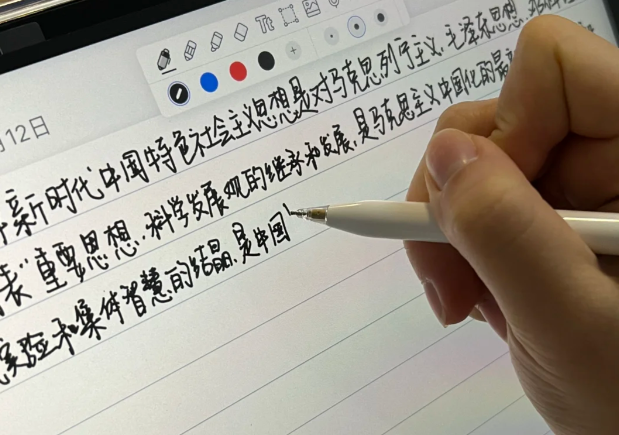 Tt
月12日
新时代中国特色社会主义思想是对马克思列宁主义、毛泽东思想、
表”重要思想、科学发展观的继承和发展，是马克思主义中国化的最
实验和集体智慧的结晶，是中国